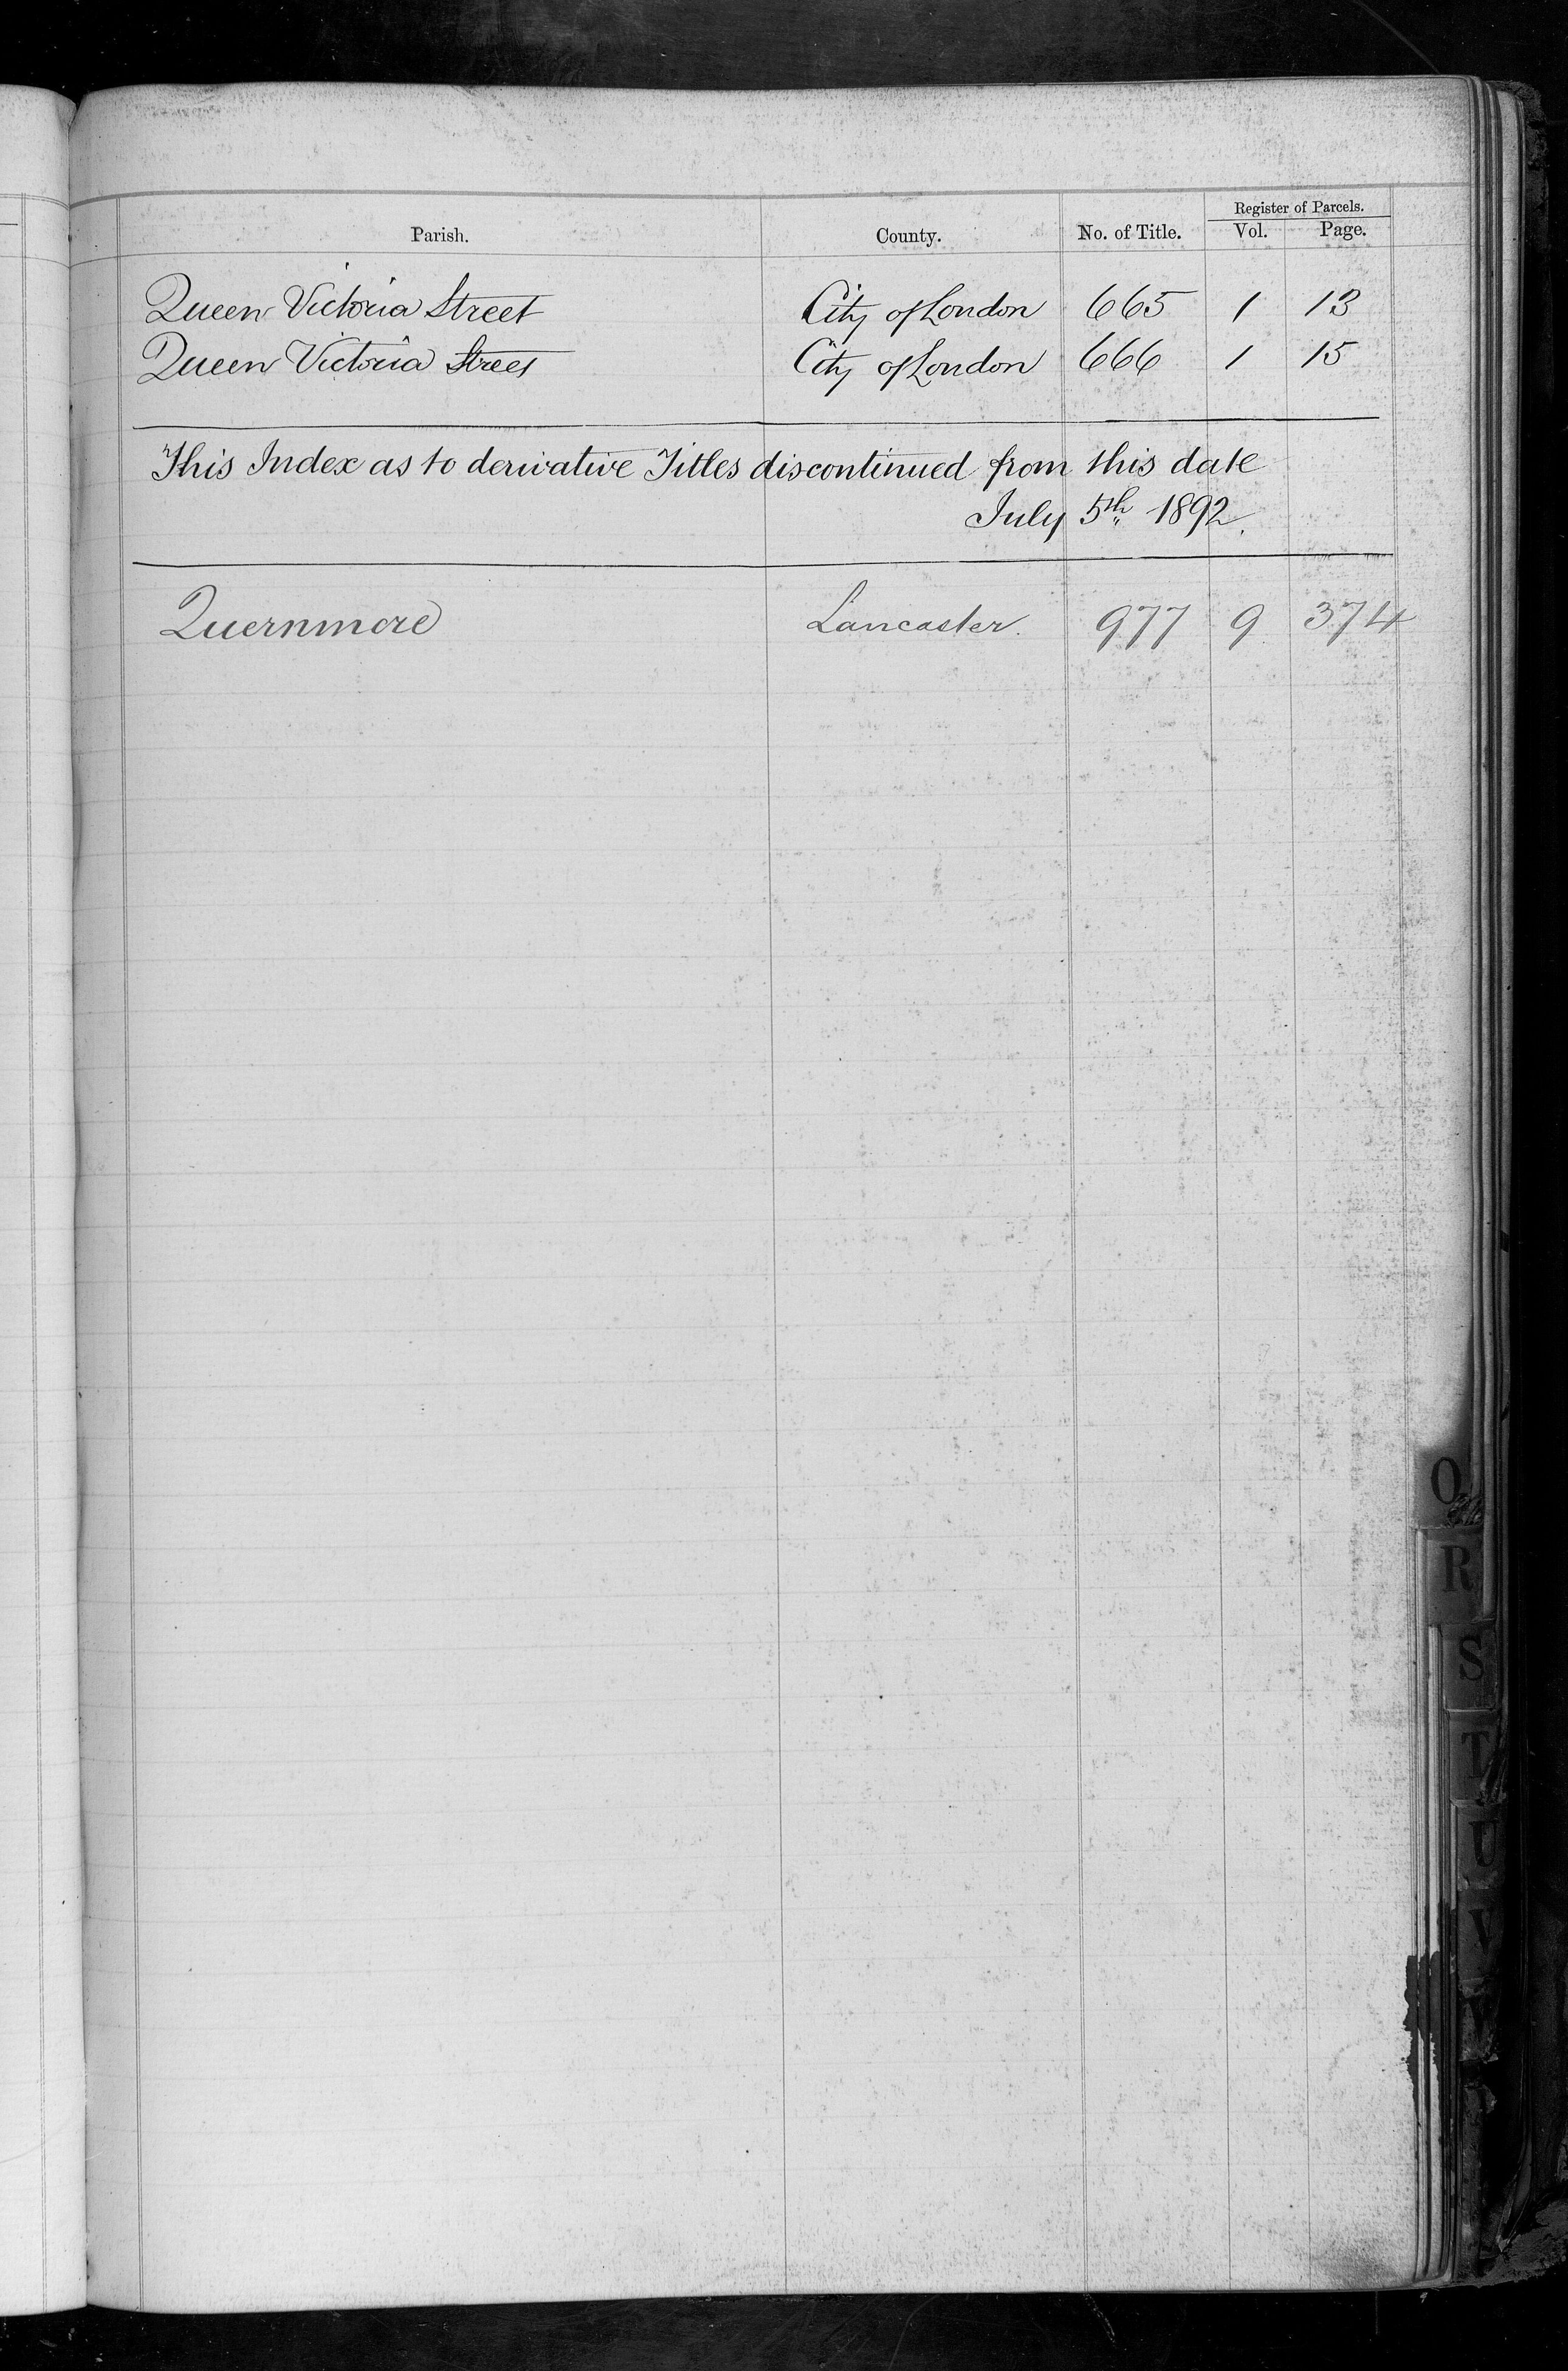 Register of Parcels.
Parish. County. No. of Title. Vol. Page.
Queen Victoria Street City of London 665 1 13
Queen Victoria Street City of London 666 1 15
This Index as to derivative Titles discontinued from this date
July 5th 1892.
Quernmore Lancaster. 977 9 374
Q
R
S
T
U
V
W